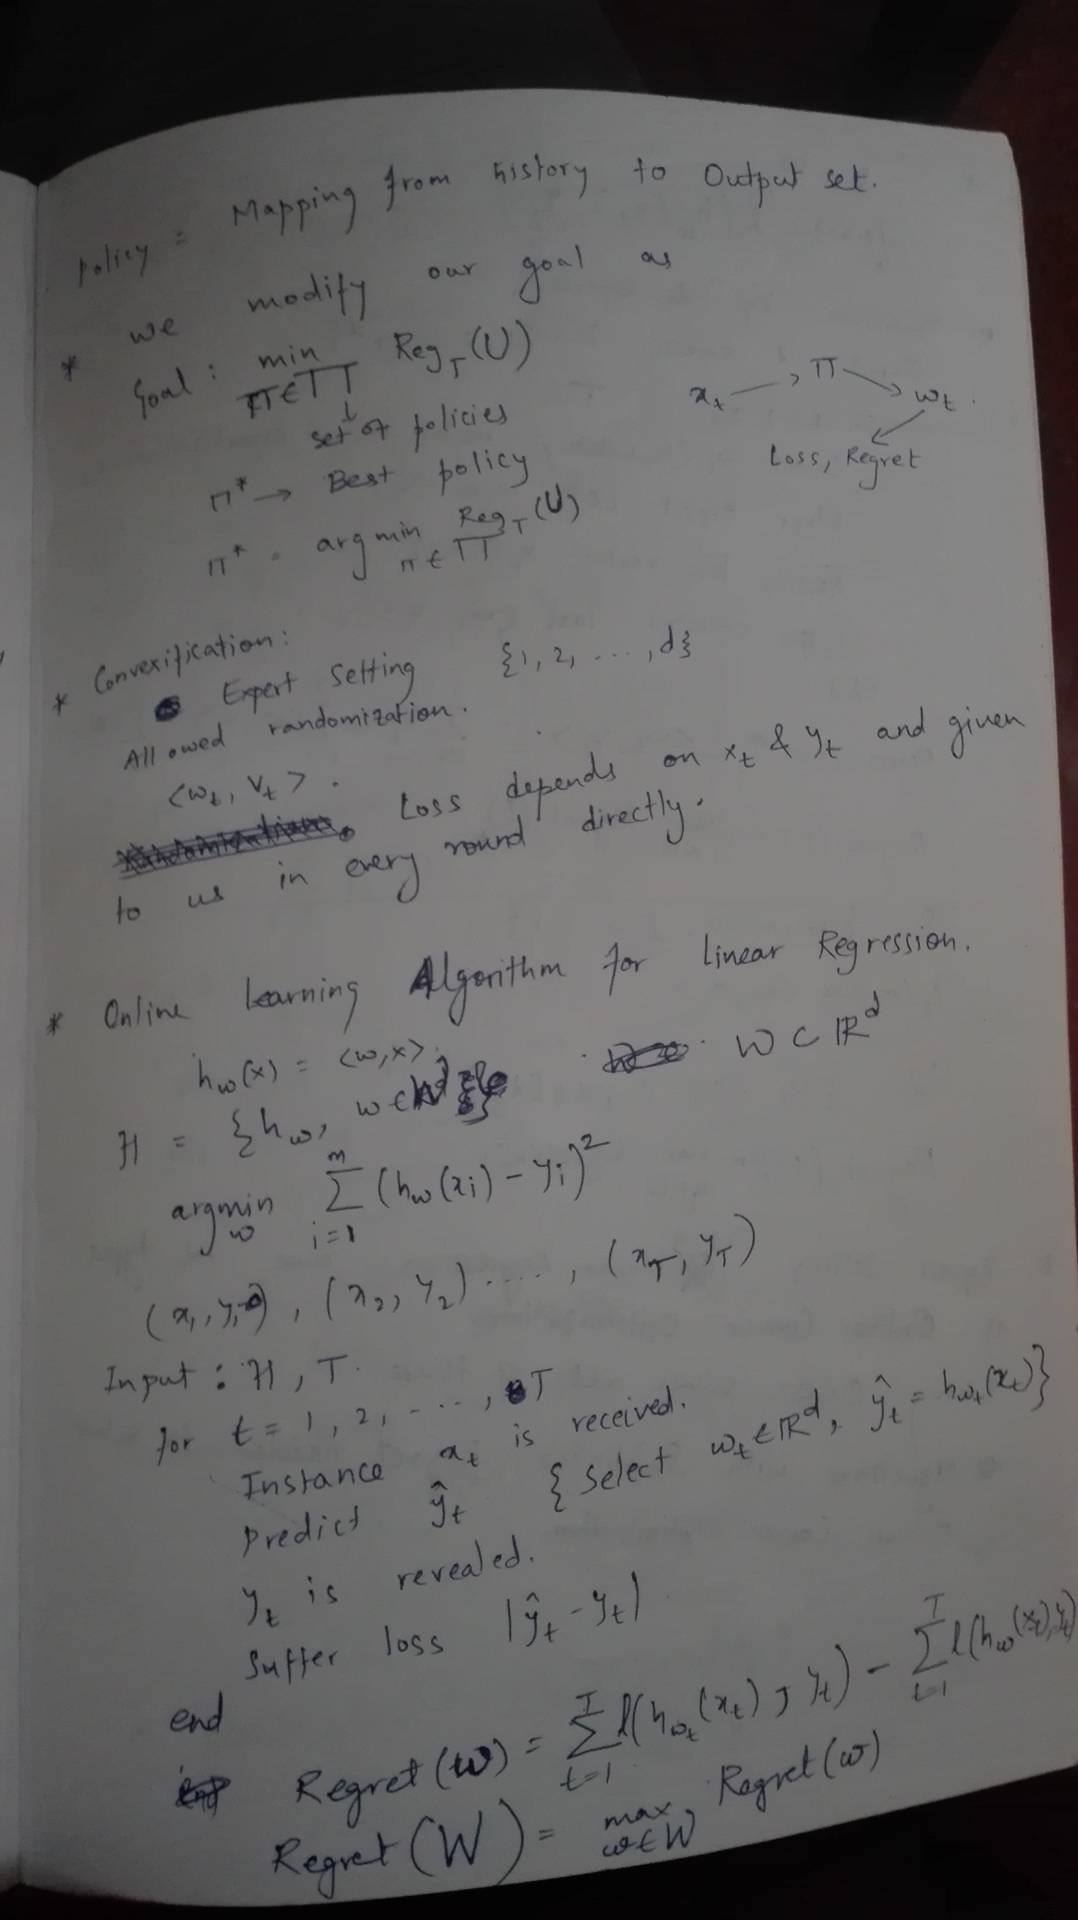 policy = Mapping from history to Output set.
* we modify our goal as
Goal : min Reg_T (U)
π ∈ Π
↓
set of policies
x_t → Π → w_t .
Loss, Regret
π* → Best policy
π* = arg min Reg_T (U)
π ∈ Π
* Convexification:
Expert Setting {1, 2, ..., d}
Allowed randomization.
<w_t, v_t> .
Loss depends on x_t & y_t and given
to us in every round directly.
* Online learning Algorithm for Linear Regression.
h_w(x) = <w, x>.
H = {h_w, w ∈ W} W ⊂ ℝ^d
argmin_w Σ_{i=1}^{m} (h_w(x_i) - y_i)^2
(x_1, y_1), (x_2, y_2) ....., (x_T, y_T)
Input : H, T.
for t = 1, 2, ..., T
Instance x_t is received.
Predict ŷ_t { Select w_t ∈ ℝ^d, ŷ_t = h_{w_t}(x_t)}
y_t is revealed.
Suffer loss |ŷ_t - y_t|
end
Regret (w) = Σ_{t=1}^{T} l(h_{w_t}(x_t), y_t) - Σ_{t=1}^{T} l(h_w(x_t), y_t)
Regret (W) = max_{w ∈ W} Regret (w)